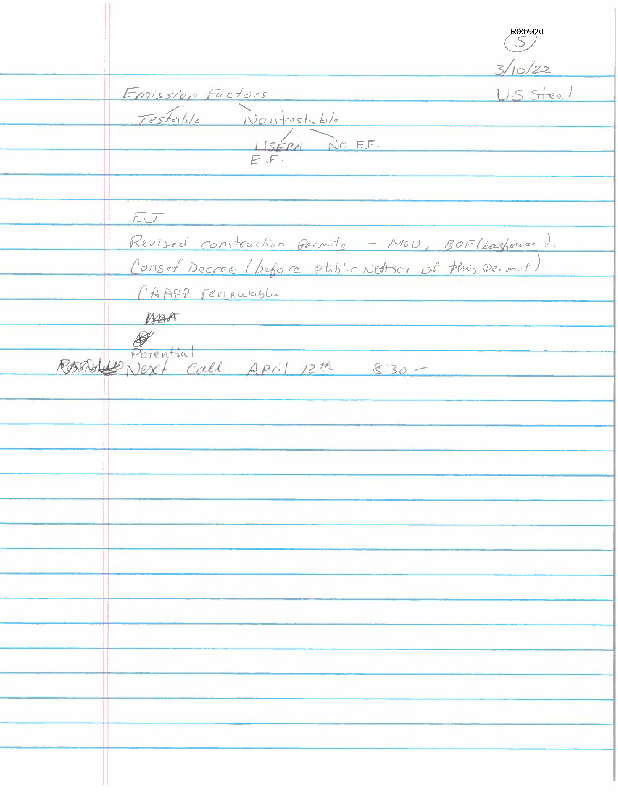 5
3/10/22
Emission Factors U.S. Steel
Testable Nontestable
USEPA No E.F.
E.F.
EJ
Revised construction permits - MOU, BOF (baghouse).
Conset Decree (before public notice of this permit)
CAAPP renewable
Potential
Next Call April 12th 8:30 -